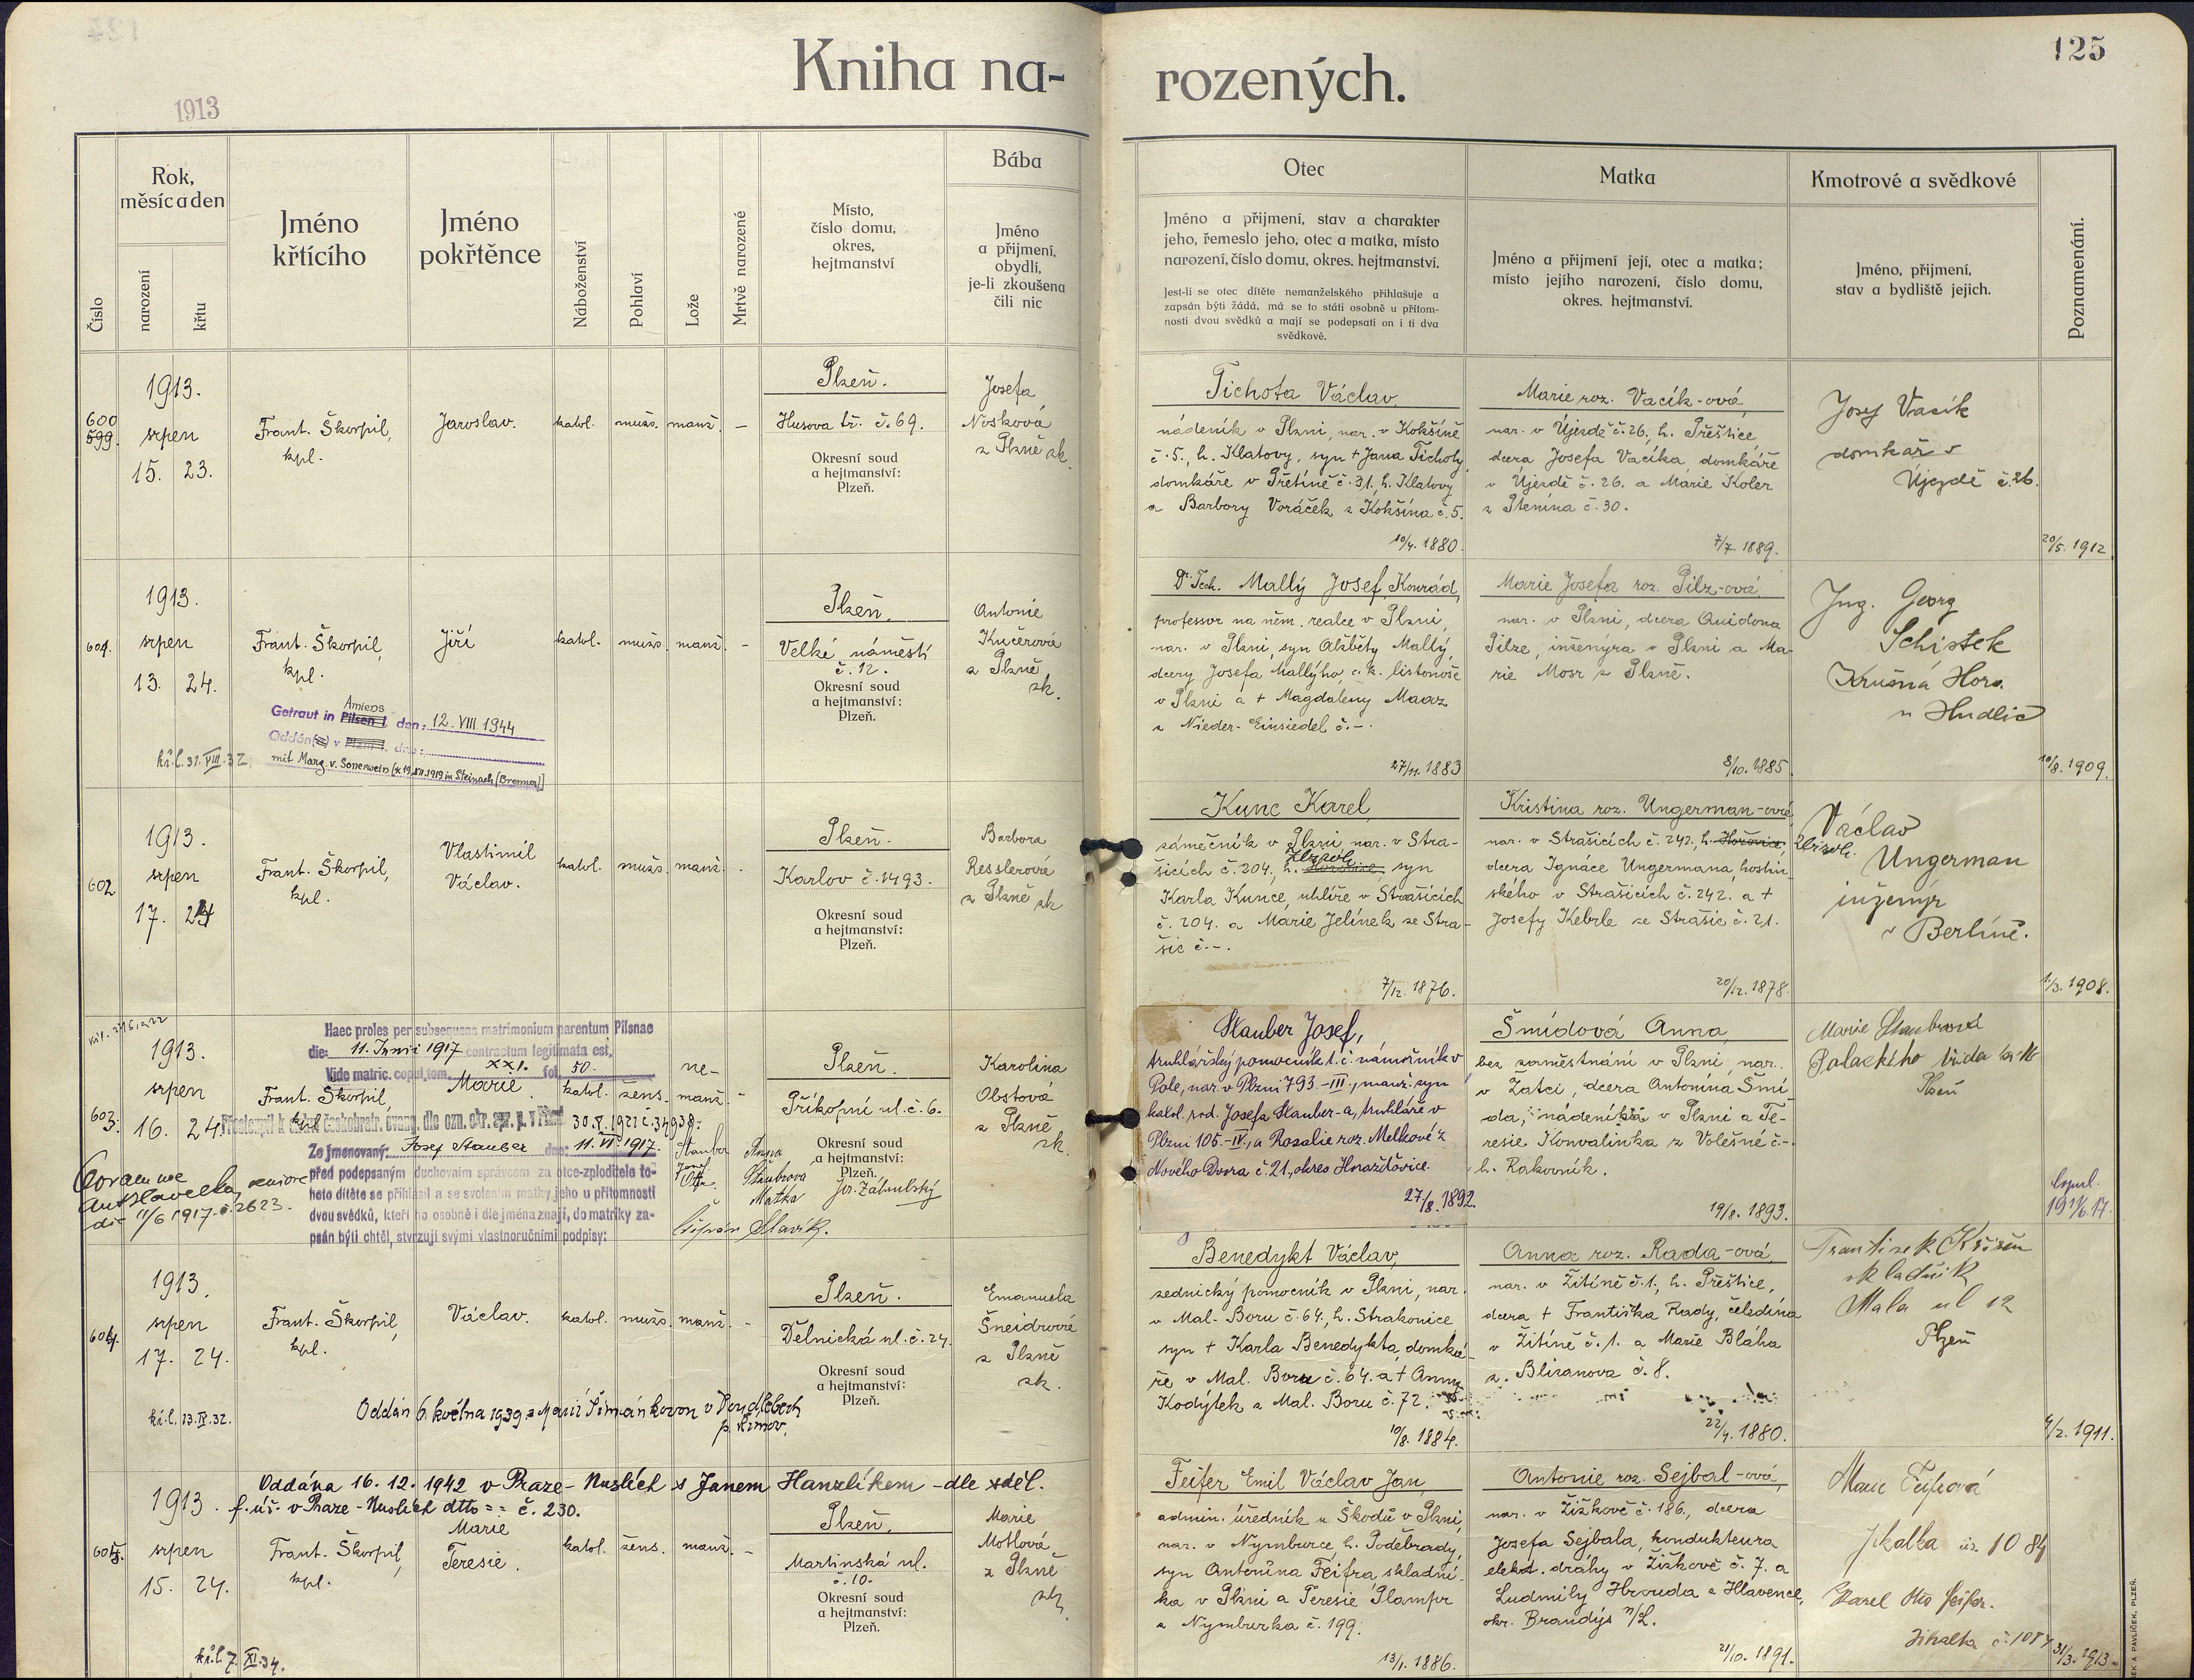 Kniha na-
rozených.
125
1913
Číslo
Rok,
měsíc a den
narození
křtu
Jméno
křtícího
Jméno
pokřtěnce
Náboženství
Pohlaví
Lože
Mrtvě narozené
Místo,
číslo domu,
okres,
hejtmanství
Bába
Jméno
a přijmení,
obydlí,
je-li zkoušena
čili nic
Otec
Jméno a přijmení, stav a charakter
jeho, řemeslo jeho, otec a matka, místo
narození, číslo domu, okres. hejtmanství.
Jest-li se otec dítěte nemanželského přihlašuje a
zapsán býti žádá, má se to státi osobně u přítom-
nosti dvou svědků a mají se podepsati on i ti dva
svědkové.
Matka
Jméno a přijmení její, otec a matka;
místo jejího narození, číslo domu,
okres. hejtmanství.
Kmotrové a svědkové
Jméno, přijmení,
stav a bydliště jejich.
Poznamenání.
600
599.
1913.
srpen
15. 23.
Frant. Škorpil,
kpl.
Jaroslav.
katol.
mužs.
manž.
–
Plzeň.
Husova tř. č. 69.
Okresní soud
a hejtmanství:
Plzeň.
Josefa
Nosková
z Plzně zk.
Tichota Václav,
nádeník v Plzni, nar. v Kokšíně
č. 5., h. Klatovy, syn + Jana Tichoty,
domkáře v Přetíně č. 31, h. Klatovy
a Barbory Voráček z Kokšína č. 5.
10/4. 1880.
Marie roz. Vacík-ová,
nar. v Újezdě č. 26, h. Přeštice
dcera Josefa Vacíka, domkáře
v Újezdě č. 26. a Marie Koler
z Ptenína č. 30.
7/7. 1889.
Josef Vacík
domkář v
Újezdě č. 26.
20/5. 1912.
601.
1913.
srpen
13. 24.
Frant. Škorpil,
kpl.
Jiří
katol.
mužs.
manž.
–
Plzeň.
Velké náměstí
č. 12.
Okresní soud
a hejtmanství:
Plzeň.
Antonie
Kučerová
z Plzně
zk.
Amiens
Getraut in Pilsen I. den: 12. VIII. 1944
Oddán(a) v Plzni I. dne:
mit Marg. v. Sonerwein [x 19.XII.1919 in Steinach (Brenner)]
kř. l. 31. VIII. 32.
Dr. Tech. Mallý Josef Konrád,
professor na něm. realce v Plzni,
nar. v Plzni, syn Alžběty Mallý,
dcery Josefa Mallýho, c. k. listonoše
v Plzni a + Magdaleny Maarz
z Nieder-Einsiedel č. –.
27/11. 1883
Marie Josefa roz. Pilz-ová,
nar. v Plzni, dcera Quidona
Pilze, inženýra v Plzni a Ma-
rie Mosr z Plzně.
8/10. 1885.
Ing. Georg
Schistek
Krušná Hora
u Hudlic
10/8. 1909.
602.
1913.
srpen
17. 24
Frant. Škorpil,
kpl.
Vlastimil
Václav.
katol.
mužs.
manž.
Plzeň.
Karlov č. 1493.
Okresní soud
a hejtmanství:
Plzeň.
Barbora
Resslerová
z Plzně zk
Kunc Karel,
zámečník v Plzni, nar. v Stra-
šicích č. 204, h. Hořovice, syn
Karla Kunce, uhlíře v Strašicích
č. 204. a Marie Jelínek ze Stra-
šic č. –.
7/12. 1876.
Kristina roz. Ungerman-ová,
nar. v Strašicích č. 242, h. Hořovice,
dcera Ignáce Ungermana, hostin-
ského v Strašicích č. 242. a +
Josefy Kebrle ze Strašic č. 21.
20/12. 1878.
Václav
Ungerman
inženýr
v Berlíně.
1/3. 1908.
603.
1913.
srpen
16. 24.
Haec proles per subsequens matrimonium parentum Pilsnae
die: 11. Junii 1917 contractum legitimata est,
Vide matric. copul. tom. XXI. fol. 50.
Frant. Škorpil,
kpl.
Marie
katol.
žens.
ne-
manž.
–
Plzeň.
Příkopní ul. č. 6.
Okresní soud
a hejtmanství:
Plzeň.
Karolina
Obstová
z Plzně
zk.
30. X. 1921 č. 34938.
Ze jmenovaný: Josef Stauber dne: 11. VI. 1917.
před podepsaným duchovním správcem za otce-zploditele to-
hoto dítěte se přihlásil a se svolením matky jeho u přítomnosti
dvou svědků, kteří ho osobně i dle jména znají, do matriky za-
psán býti chtěl, stvrzují svými vlastnoručními podpisy:
Stauber
Josef
Otec.
Anna
Štaubrova
Matka
Štěpán Slavík.
Coram me
11/6 1917. č. 2623.
Stauber Josef,
truhlářský pomocník t. č. námořník v
Pole, nar. v Plzni 793.-III., manž. syn
katol. rod. Josefa Stauber-a, truhláře v
Plzni 105.-IV., a Rosalie roz. Melkové z
Nového Dvora č. 21, okres Horažďovice.
27/8. 1892.
Šmídová Anna,
bez zaměstnání v Plzni, nar.
v Žatci, dcera Antonína Šmí-
da, nádeníka v Plzni a Te-
resie Konvalinka z Volešné č. –
h. Rakovník.
19/8. 1893.
Marie Staubrová
Palackého třída
Plzeň
604.
1913.
srpen
17. 24.
Frant. Škorpil,
kpl.
Václav.
katol.
mužs.
manž.
–
Plzeň.
Dělnická ul. č. 24.
Okresní soud
a hejtmanství:
Plzeň.
Emanuela
Šneidrová
z Plzně
zk.
kř. l. 13. IX. 32.
Oddán 6. května 1939 s Marií Šimánkovou v
Benedykt Václav,
zednický pomocník v Plzni, nar.
v Mal. Boru č. 64., h. Strakonice
syn + Karla Benedykta, domká-
ře v Mal. Boru č. 64. a + Anny
Kodýtek z Mal. Boru č. 72.
10/8. 1884.
Anna roz. Rada-ová,
nar. v Žitíně č. 1., h. Přeštice,
dcera + Františka Rady, čeledína
v Žitíně č. 1. a Marie Bláha
z Blizanova č. 8.
22/4. 1880.
František Křižen
skladník
Mala ul 12
Plzeň
4/2. 1911.
Oddána 16. 12. 1942 v Praze-Nuslích s Janem Hanzlíkem – dle sděl.
f. úř. v Praze-Nuslích dtto č. 230.
605.
1913.
srpen
15. 24.
Frant. Škorpil,
kpl.
Marie
Teresie.
katol.
žens.
manž.
–
Plzeň.
Martinská ul.
č. 10.
Okresní soud
a hejtmanství:
Plzeň.
Marie
Motlová
z Plzně
zk.
kř. l. 7. XI. 34.
Feifer Emil Václav Jan
admin. úředník u Škodů v Plzni,
nar. v Nymburce, h. Poděbrady,
syn Antonína Feifra skladní-
ka v Plzni a Teresie Plampr
z Nymburka č. 199.
13/1. 1886.
Antonie roz. Sejbal-ová,
nar. v Žižkově č. 186., dcera
Josefa Sejbala, kondukteura
elekt. dráhy v Žižkově č. 7. a
Ludmily Hrouda z Hlavence,
okr. Brandýs n/L.
21/10. 1891.
Marie Feifrová
Jikalka čís. 1084
Karel Otto Feifer.
Jikalka č. 1084
31/3. 1913.